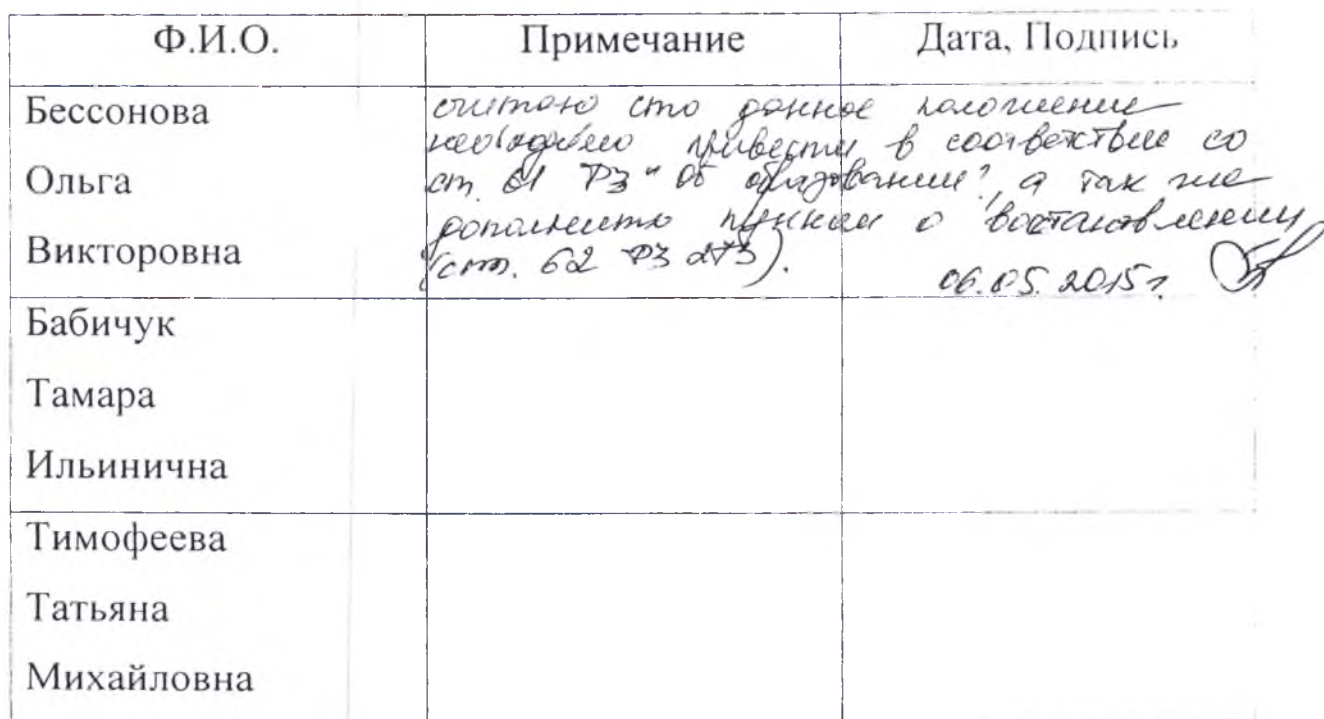 Ф.И.О. Примечание Дата, Подпись
Бессонова
Ольга
Викторовна
считаю что данное положение
необходимо привести в соответствие со
ст. 61 ФЗ "Об образовании", а так же
дополнить пунктом о востановлении
(ст. 62 ФЗ 273).
06.05.2015г.
Бабичук
Тамара
Ильинична
Тимофеева
Татьяна
Михайловна